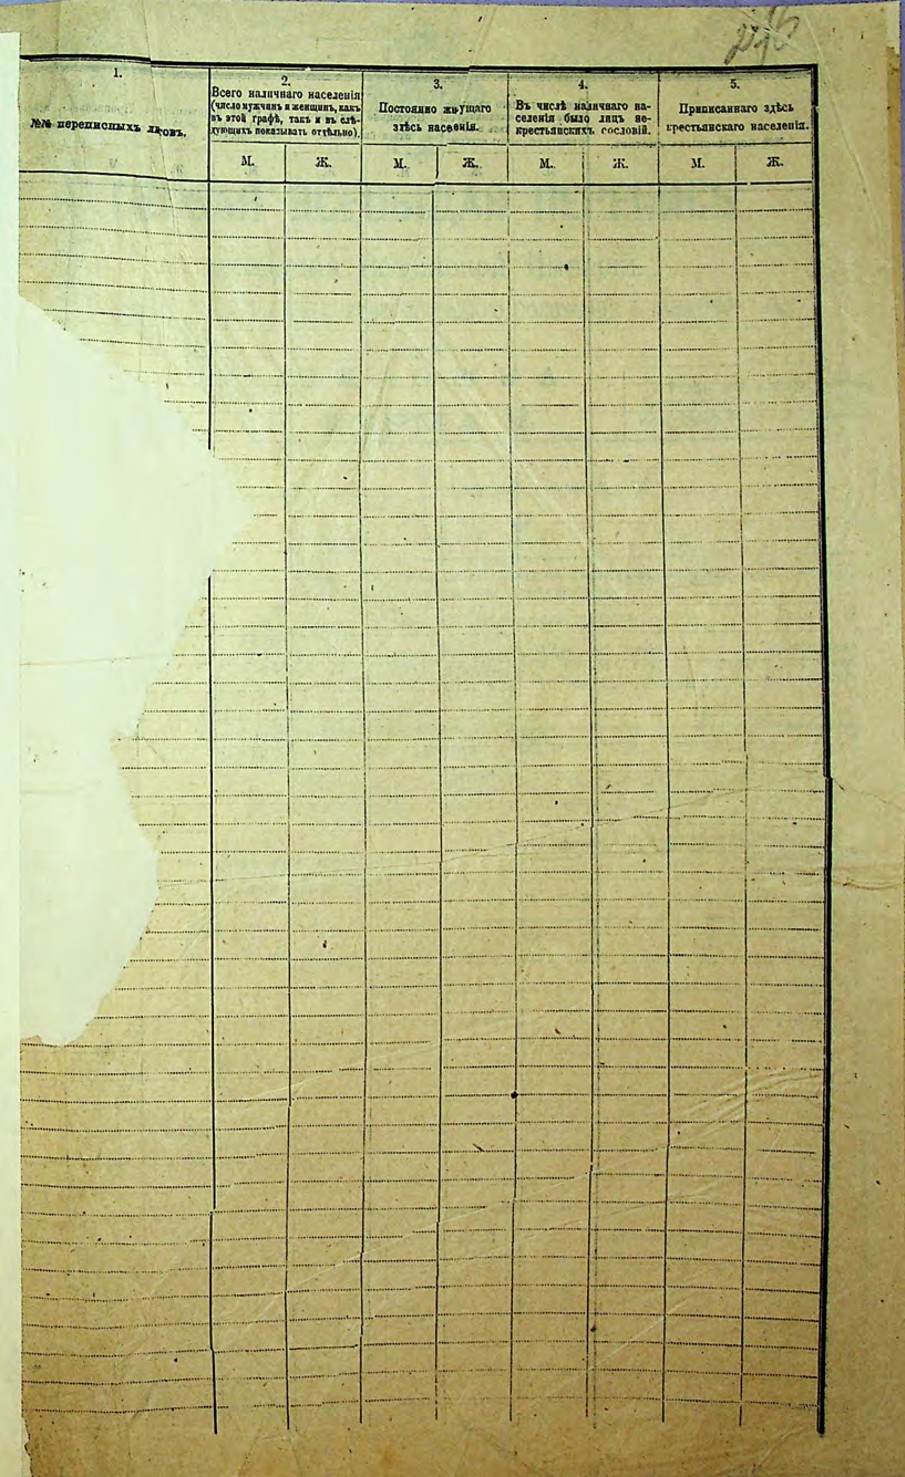 1.
№№ переписныхъ л
2.
Всего наличнаго населенія
(число мужчинъ и женщинъ, какъ
въ этой графѣ, такъ и въ слѣ-
дующихъ показывать отдѣльно).
3.
Постоянно живущаго
здѣсь населенія.
4.
Въ числѣ наличнаго на-
селенія было лицъ не-
крестьянскихъ сословій.
5.
Приписаннаго здѣсь
крестьянскаго населенія.
М. Ж. М. Ж. М. Ж. М. Ж.